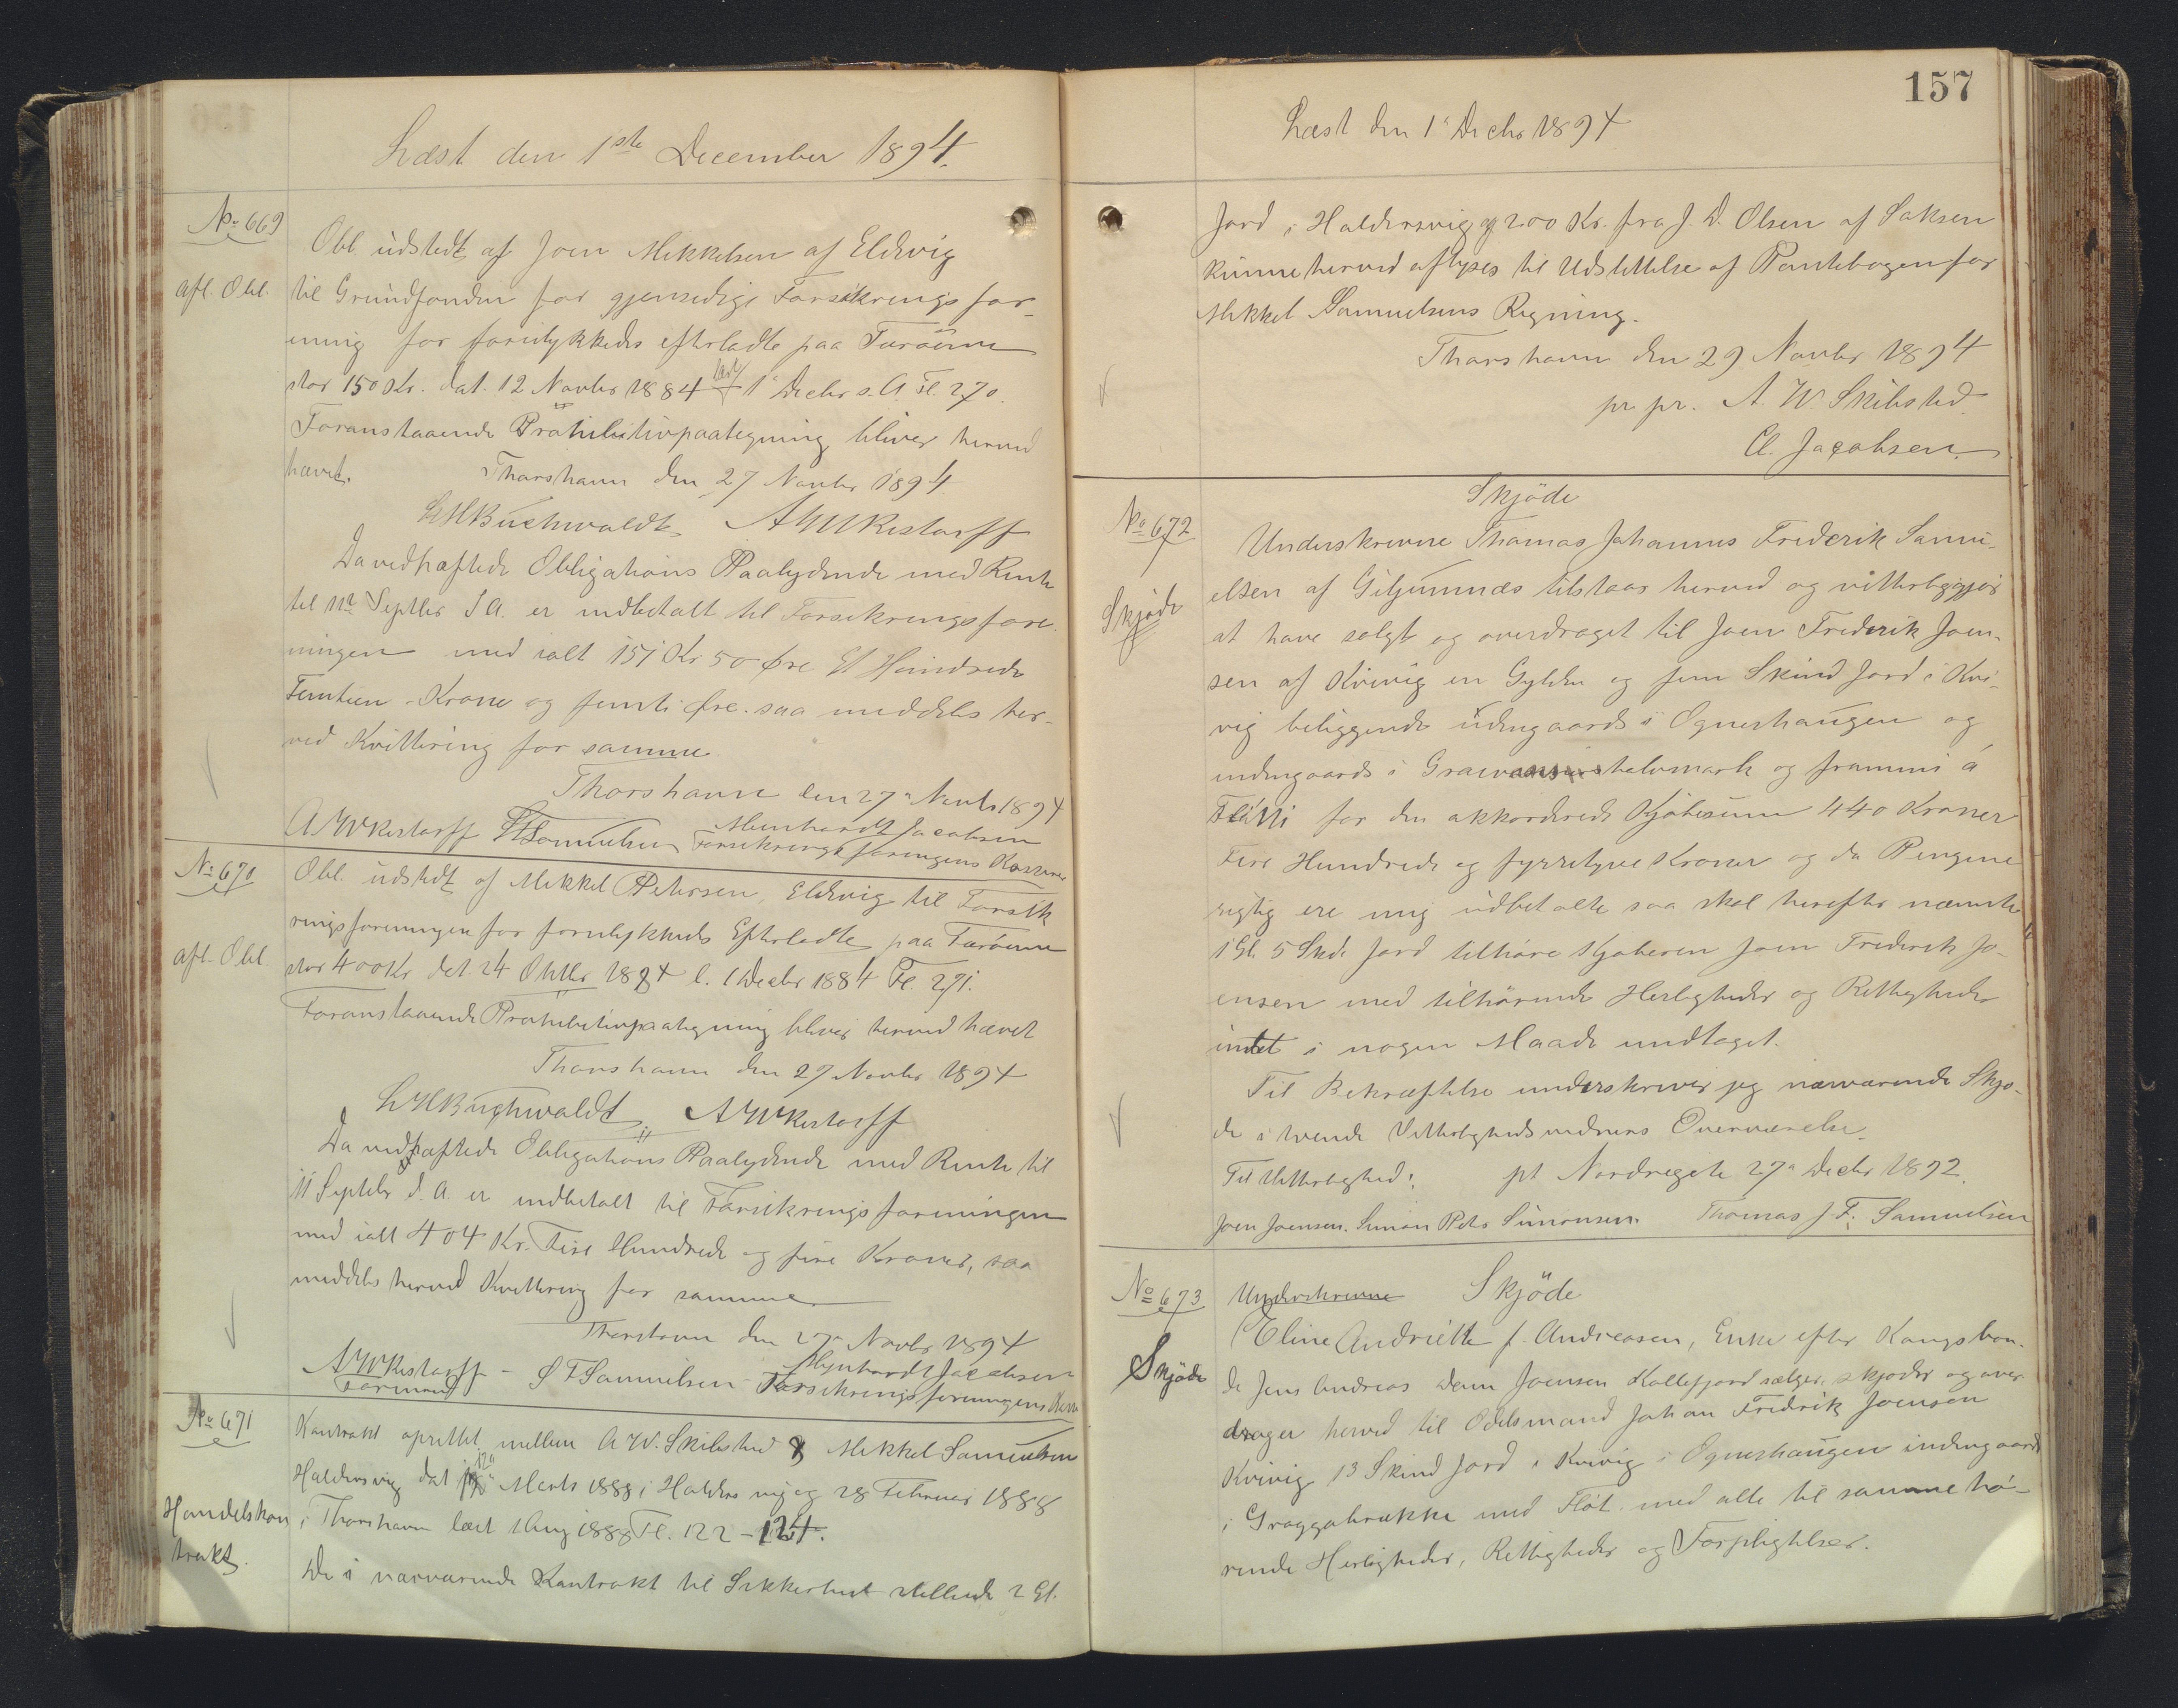 Læst den 1ste December 1894.
No 669
afl. Obl.
Obl. udstedt af Joen Mikkelsen af Eldevig
til Grundfonden for gjensidige Forsikrings for-
ening for forulykkedes efterladte paa Færöerne
stor 150 Kr. dat. 12 Novbr 1884 læst 1ª Decbr s. A. Fl. 270.
Foranstaaende Prohibitivpaategning bliver herved
hævet. Thorshavn den 27 Novbr 1894
LHBuchwaldt AWRestorff
Da vedhæftede Obligations Paalydende med Rente
til 11te Septbr d. A. er indbetalt til Forsikringsfore-
ningen med ialt 151 Kr 50 Øre Et Hundrede
Femteen Krone og femti Øre. saa meddeles her-
ved Kvittering for samme
Thorshavn den 27ª Novbr 1894
AWRestorff SFSamuelsen Meinhardt Jacobsen
Forsikringsforeningens Kasserer
No 670
afl. Obl.
Obl. udstedt af Mikkel Petersen, Eldevig til Forsik
ringsforeningen for forulykkedes Efterladte paa Færöerne
stor 400 Kr dat 24 Oktbr 1884 l. 1 Decbr 1884 Fl. 271.
Foranstaaende Prohibitivpaategning bliver herved hævet
Thorshavn den 27 Novbr 1894
LHBuchwaldt AWRestorff
Da vedhæftede Obligations Paalydende med Rente til
11 Septbr d. A. er indbetalt til Forsikringsforeningen
med ialt 404 Kr. Fire Hundrede og fire Kroner, saa
meddeles herved Kvittering for samme
Thorshavn den 27ª Novbr 1894
AWRestorff - SFSamuelsen - Meinhardt Jacobsen
Formand Forsikringsforeningens
No 671
Handelskon
trakt.
Kontrakt oprettet mellem A. W. Skibsted & Mikkel Samuelsen
Haldersvig dat 12ª Marts 1888 i Haldersvig og 28 Februar 1888
i Thorshavn læst 1 Aug 1888 Fl. 122 - 124.
De i nærværende Kontrakt til Sikkerhed stillede 2 Gl.
157
Læst den 1ª Decbr 1894
Jord i Haldersvig og 200 Kr. fra J. D. Olsen af Saksen
kunne herved aflyses til Udslettelse af Pantebogen for
Mikkel Samuelsens Regning.
Thorshavn den 29 Novbr 1894
pr. pr. A. W. Skibsted
Cl. Jacobsen
No 672
Skjöde
Skjöde
Underskrevne Thomas Johannes Frederik Samu-
elsen af Giljumnæs tilstaar herved og vitterliggjör
at have solgt og overdraget til Joen Frederik Joen-
sen af Kvivig en Gylden og fem Skind Jord i Kvi-
vig beliggende udengaards i Ognerhaugen og
indengaards i helvmark og frammi á
Fløtti for den akkorderede Kjöbesum 440 Kroner
Fire Hundrede og fyrretyve Kroner og da Pengene
rigtig ere mig udbetalte saa skal herefter nævnte
1 Gl. 5 Skd. Jord tilhöre Kjöberen Joen Frederik Jo-
ensen med tilhörende Herligheder og Rettigheder
intet i nogen Maade undtaget.
Til Bekræftelse underskriver jeg nærværende Skjö-
de i tvende Vitterlighedsvidners Overværelse.
Til Vitterlighed: pt Nordregöte 27ª Decbr 1892.
Joen Joensen. Simon Peter Simonsen. Thomas J. F. Samuelsen
No 673
Skjöde
Underskrevne Skjöde
Eline Andriette f. Andreasen, Enke efter Kongsbon-
de Jens Andreas Dam Joensen Kollefjord sælger, skjöder og over
drager herved til Odelsmand Johan Fredrik Joensen
Kvivig 13 Skind Jord i Kvivig i Ognerhaugen indengaards
i Graggabrekke med Flöt med alle til samme hö-
rende Herligheder, Rettigheder og Forpligtelser.